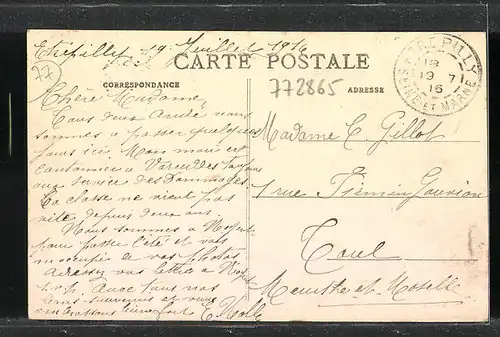 Etrépilly 19 Juillet 1916
CARTE POSTALE
77
772865
CORRESPONDANCE
ADRESSE
ETREPILLY
19 7
16
SEINE ET MARNE
Chère Madame,
Tous deux André nous
sommes à passer quelques
jours ici. Mon mari est
cantonné à
aux service des Dommages.
La classe ne vient pas
vite depuis deux ans.
Nous sommes à
pour passer l'été et vais
m'occuper de vos photos
Adressez vos lettres à
s.v.p. Avec tous nos
bons souvenirs et vous
embrassons bien fort E.
Madame C. Gillot
1 rue Firmin Gouvion
Toul
Meurthe et Moselle